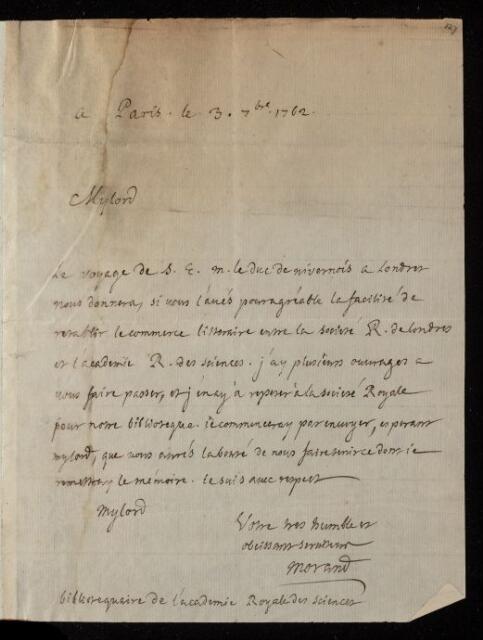 a Paris. le 3. 7bre. 1762.
Mylord
Le voyage de S. E. m. le duc de nivernois a Londres
nous donnera, si vous l'avés pour agréable la facilité de
retablir le commerce litteraire entre la societé R. de londres
et l'academie R. des sciences. j'ay plusieurs ouvrages a
vous faire passer, et j'en ay à repeter à la societé Royale
pour notre biblioteque. je commenceray par envoyer, esperant
mylord, que vous aurés la bonté de nous faire tenir ce dont je
remettray le mémoire. je suis avec respect
Mylord
Votre tres humble et
obeissant serviteur
Morand
bibliotequaire de l'academie Royale des sciences